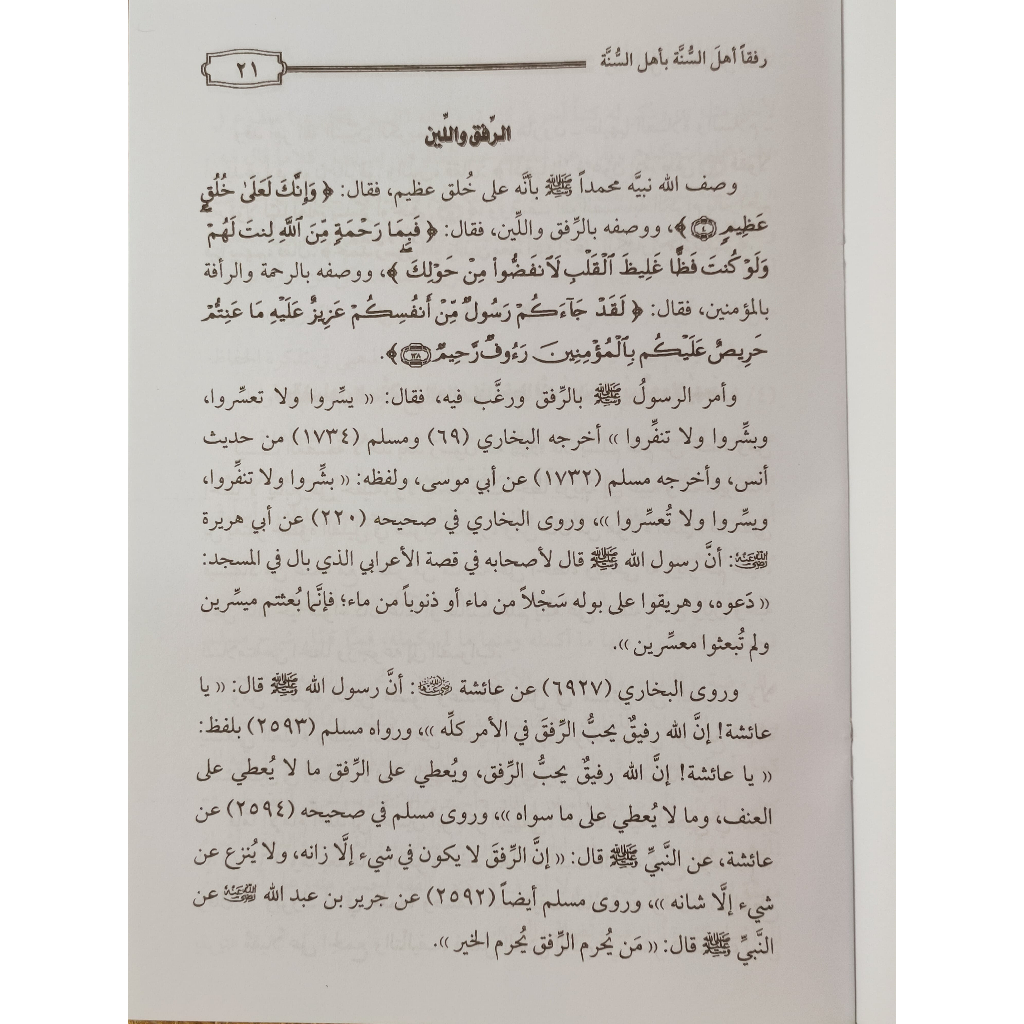 رفقاً أهلَ السُّنَّة بأهل السُّنَّة ٢١
الرِّفق واللِّين
وصف الله نبيَّه محمداً ﷺ بأنَّه على خُلق عظيم، فقال: ﴿ وَإِنَّكَ لَعَلَىٰ خُلُقٍ
عَظِيمٍ ٤ ﴾، ووصفه بالرِّفق واللِّين، فقال: ﴿ فَبِمَا رَحْمَةٍ مِّنَ ٱللَّهِ لِنتَ لَهُمْ
وَلَوْ كُنتَ فَظًّا غَلِيظَ ٱلْقَلْبِ لَٱنفَضُّوا۟ مِنْ حَوْلِكَ ﴾، ووصفه بالرحمة والرأفة
بالمؤمنين، فقال: ﴿ لَقَدْ جَآءَكُمْ رَسُولٌ مِّنْ أَنفُسِكُمْ عَزِيزٌ عَلَيْهِ مَا عَنِتُّمْ
حَرِيصٌ عَلَيْكُم بِٱلْمُؤْمِنِينَ رَءُوفٌ رَّحِيمٌ ١٢٨ ﴾.
وأمر الرسولُ ﷺ بالرِّفق ورغَّب فيه، فقال: « يسِّروا ولا تعسِّروا،
وبشِّروا ولا تنفِّروا » أخرجه البخاري (٦٩) ومسلم (١٧٣٤) من حديث
أنس، وأخرجه مسلم (١٧٣٢) عن أبي موسى، ولفظه: « بشِّروا ولا تنفِّروا،
ويسِّروا ولا تُعسِّروا »، وروى البخاري في صحيحه (٢٢٠) عن أبي هريرة
رضي الله عنه: أنَّ رسول الله ﷺ قال لأصحابه في قصة الأعرابي الذي بال في المسجد:
« دَعوه، وهريقوا على بوله سَجْلاً من ماء أو ذنوباً من ماء؛ فإنَّما بُعثتم ميسِّرين
ولم تُبعثوا معسِّرين ».
وروى البخاري (٦٩٢٧) عن عائشة رضي الله عنها: أنَّ رسول الله ﷺ قال: « يا
عائشة! إنَّ الله رفيقٌ يحبُّ الرِّفقَ في الأمر كلِّه »، ورواه مسلم (٢٥٩٣) بلفظ:
« يا عائشة! إنَّ الله رفيقٌ يحبُّ الرِّفق، ويُعطي على الرِّفق ما لا يُعطي على
العنف، وما لا يُعطي على ما سواه »، وروى مسلم في صحيحه (٢٥٩٤) عن
عائشة، عن النَّبيِّ ﷺ قال: « إنَّ الرِّفقَ لا يكون في شيء إلَّا زانه، ولا يُنزع عن
شيء إلَّا شانه »، وروى مسلم أيضاً (٢٥٩٢) عن جرير بن عبد الله رضي الله عنه عن
النَّبيِّ ﷺ قال: « مَن يُحرم الرِّفق يُحرم الخير ».